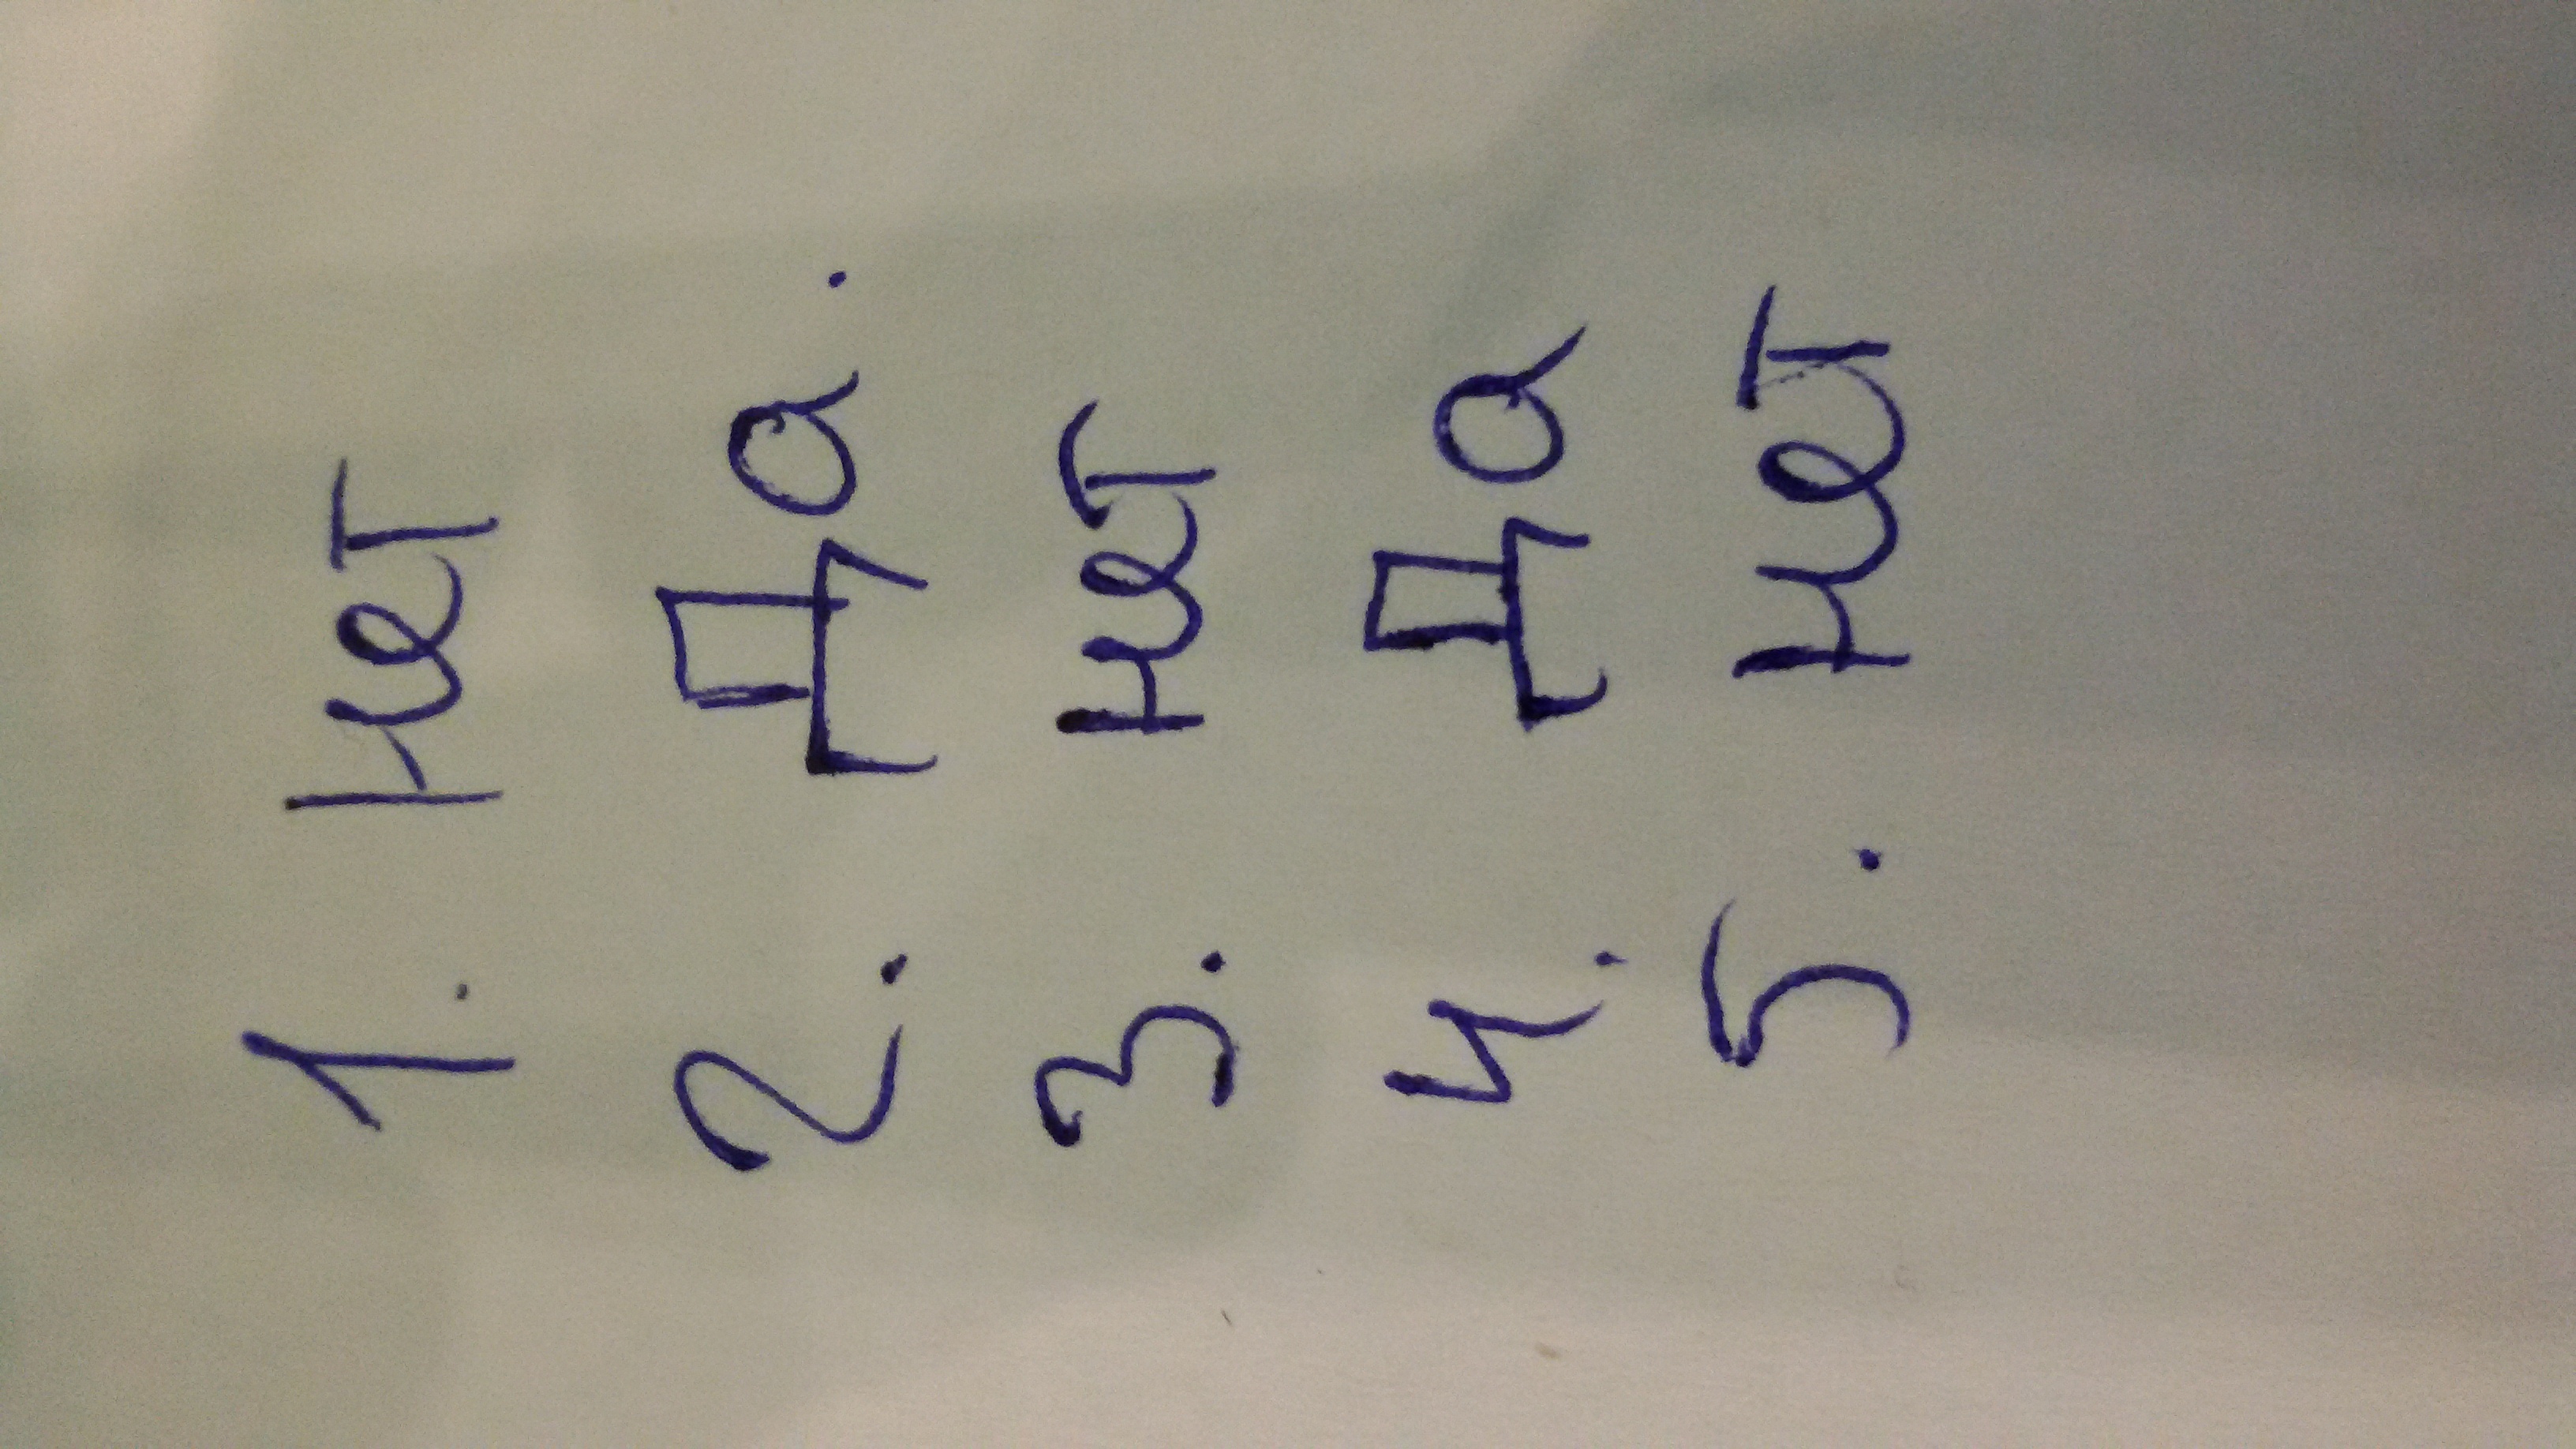 1. Нет
2. Да.
3. Нет
4. Да
5. Нет